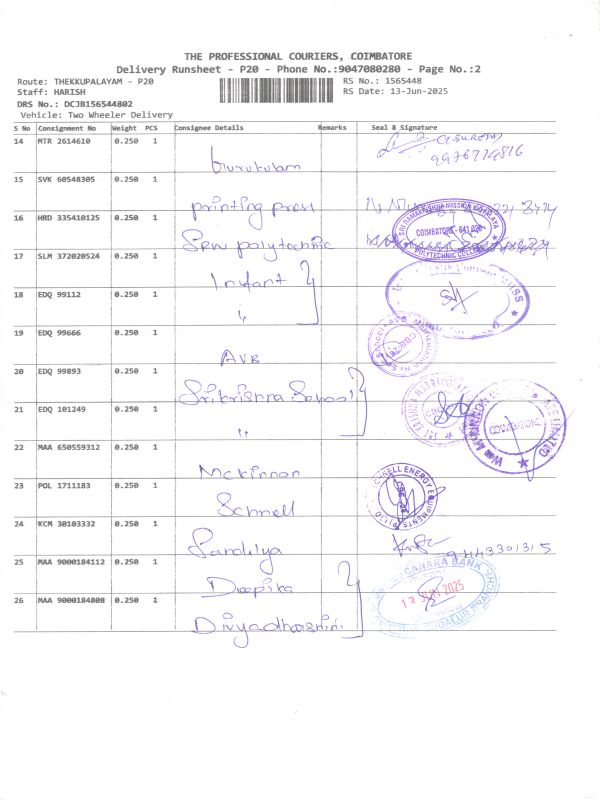 THE PROFESSIONAL COURIERS, COIMBATORE
Delivery Runsheet - P20 - Phone No.:9047080280 - Page No.:2
Route: THEKKUPALAYAM - P20
RS No.: 1565448
Staff: HARISH
RS Date: 13-Jun-2025
DRS No.: DCJB156544802
Vehicle: Two Wheeler Delivery
S No Consignment No Weight PCS Consignee Details Remarks Seal & Signature
14 MTR 2614610 0.250 1
Gurukulam
15 SVK 60548305 0.250 1
printing press
16 HRD 335410125 0.250 1
polytechnic
SRI RAMAKRISHNA MISSION VIDYALAYA
COIMBATORE - 641 020
POLYTECHNIC COLLEGE
17 SLM 372020524 0.250 1
Infant
18 EDQ 99112 0.250 1
"
19 EDQ 99666 0.250 1
AVB
20 EDQ 99893 0.250 1
Sri Krishna School
21 EDQ 101249 0.250 1
"
COIMBATORE
22 MAA 650559312 0.250 1
Mckinnon
23 POL 1711183 0.250 1
Schnell
SCHNELL ENERGY EQUIPMENTS
24 KCM 30103332 0.250 1
Sandilya
9443301315
25 MAA 9000184112 0.250 1
Deepika
CANARA BANK
13 JUN 2025
26 MAA 9000184808 0.250 1
Divyadharshini